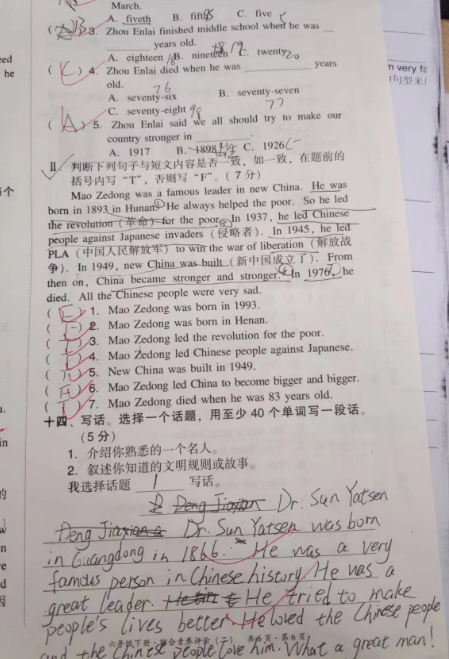 March.
A. fiveth B. fifth C. five
3. Zhou Enlai finished middle school when he was
years old.
A. eighteen 18 B. nineteen 19 C. twenty 20
( C ) 4. Zhou Enlai died when he was years
old. 76
A. seventy-six B. seventy-seven
77
C. seventy-eight 98
( A ) 5. Zhou Enlai said we all should try to make our
country stronger in .
A. 1917 B. 1898 C. 1926
Ⅱ. 判断下列句子与短文内容是否一致，如一致，在题前的
括号内写“T”，否则写“F”。（7分）
Mao Zedong was a famous leader in new China. He was
born in 1893 in Hunan. He always helped the poor. So he led
the revolution (革命) for the poor. In 1937, he led Chinese
people against Japanese invaders (侵略者). In 1945, he led
PLA (中国人民解放军) to win the war of liberation (解放战
争). In 1949, new China was built (新中国成立了). From
then on, China became stronger and stronger. In 1976, he
died. All the Chinese people were very sad.
( F ) 1. Mao Zedong was born in 1993.
( F ) 2. Mao Zedong was born in Henan.
( T ) 3. Mao Zedong led the revolution for the poor.
( T ) 4. Mao Zedong led Chinese people against Japanese.
( T ) 5. New China was built in 1949.
6. Mao Zedong led China to become bigger and bigger.
( T ) 7. Mao Zedong died when he was 83 years old.
十四、写话。选择一个话题，用至少 40 个单词写一段话。
（5分）
1. 介绍你熟悉的一个名人。
2. 叙述你知道的文明规则或故事。
我选择话题 1 写话。
Deng Jiaxian Dr. Sun Yatsen
Deng Jiaxian Dr. Sun Yatsen was born
in Guangdong in 1866. He was a very
famous person in Chinese history. He was a
great leader. He tried to make
people's lives better. He loved the Chinese people
六年级下册·综合素养评价（二） 共6页·第6页
and the Chinese people love him. What a great man!